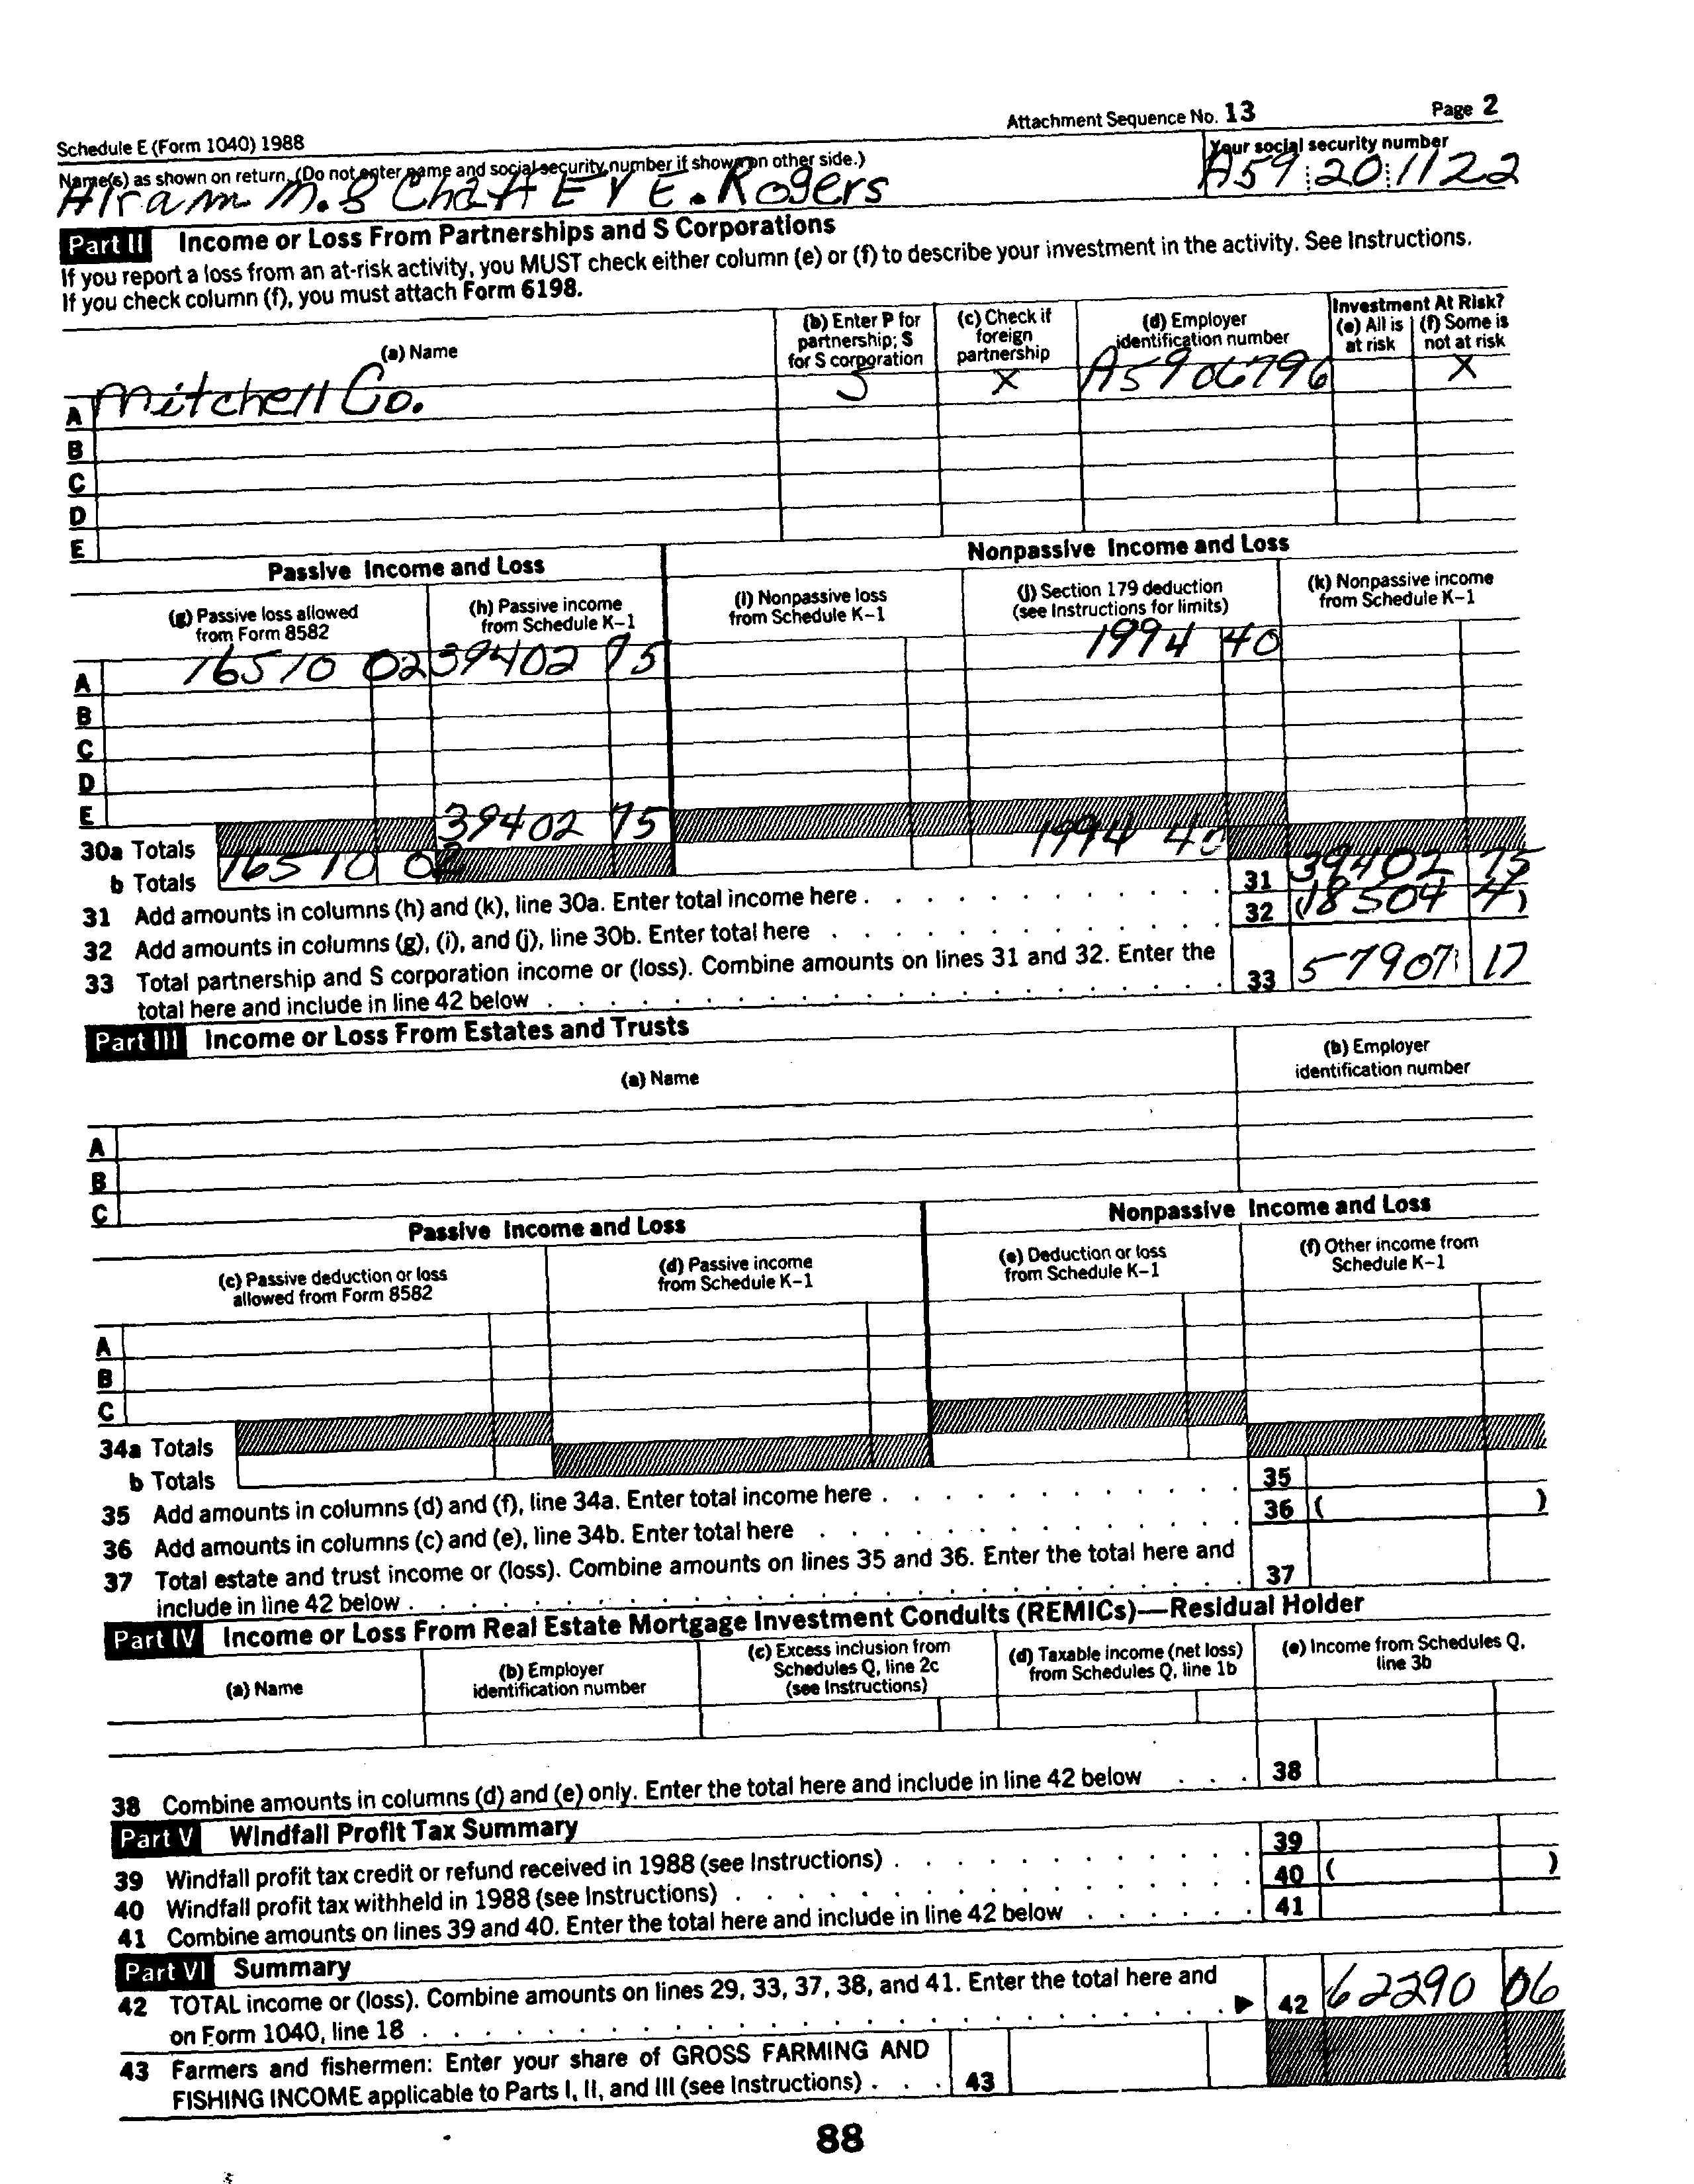 Schedule E (Form 1040) 1988 Attachment Sequence No. 13 Page 2
Name(s) as shown on return. (Do not enter name and social security number if shown on other side.) Your social security number
M. & E. Rogers A59 20 1122
Part II Income or Loss From Partnerships and S Corporations
If you report a loss from an at-risk activity, you MUST check either column (e) or (f) to describe your investment in the activity. See Instructions.
If you check column (f), you must attach Form 6198.
(a) Name (b) Enter P for partnership; S for S corporation (c) Check if foreign partnership (d) Employer identification number Investment At Risk? (e) All is at risk (f) Some is not at risk
A Mitchell Co. S X A5906796 X
B
C
D
E
Passive Income and Loss Nonpassive Income and Loss
(g) Passive loss allowed from Form 8582 (h) Passive income from Schedule K–1 (i) Nonpassive loss from Schedule K–1 (j) Section 179 deduction (see Instructions for limits) (k) Nonpassive income from Schedule K–1
A 16510 02 39402 75 1994 40
B
C
D
E
30a Totals 39402 75
b Totals 16510 02 1994 40
31 Add amounts in columns (h) and (k), line 30a. Enter total income here . 31 39402 75
32 Add amounts in columns (g), (i), and (j), line 30b. Enter total here . 32 (18504 )
33 Total partnership and S corporation income or (loss). Combine amounts on lines 31 and 32. Enter the
total here and include in line 42 below . 33 57907 17
Part III Income or Loss From Estates and Trusts
(a) Name (b) Employer identification number
A
B
C
Passive Income and Loss Nonpassive Income and Loss
(c) Passive deduction or loss allowed from Form 8582 (d) Passive income from Schedule K–1 (e) Deduction or loss from Schedule K–1 (f) Other income from Schedule K–1
A
B
C
34a Totals
b Totals
35 Add amounts in columns (d) and (f), line 34a. Enter total income here . 35
36 Add amounts in columns (c) and (e), line 34b. Enter total here . 36 ( )
37 Total estate and trust income or (loss). Combine amounts on lines 35 and 36. Enter the total here and
include in line 42 below . 37
Part IV Income or Loss From Real Estate Mortgage Investment Conduits (REMICs)—Residual Holder
(a) Name (b) Employer identification number (c) Excess inclusion from Schedules Q, line 2c (see Instructions) (d) Taxable income (net loss) from Schedules Q, line 1b (e) Income from Schedules Q, line 3b
38 Combine amounts in columns (d) and (e) only. Enter the total here and include in line 42 below . 38
Part V Windfall Profit Tax Summary
39 Windfall profit tax credit or refund received in 1988 (see Instructions) . 39
40 Windfall profit tax withheld in 1988 (see Instructions) . 40 ( )
41 Combine amounts on lines 39 and 40. Enter the total here and include in line 42 below . 41
Part VI Summary
42 TOTAL income or (loss). Combine amounts on lines 29, 33, 37, 38, and 41. Enter the total here and
on Form 1040, line 18 . ▶ 42 62290 06
43 Farmers and fishermen: Enter your share of GROSS FARMING AND
FISHING INCOME applicable to Parts I, II, and III (see Instructions) . 43
88